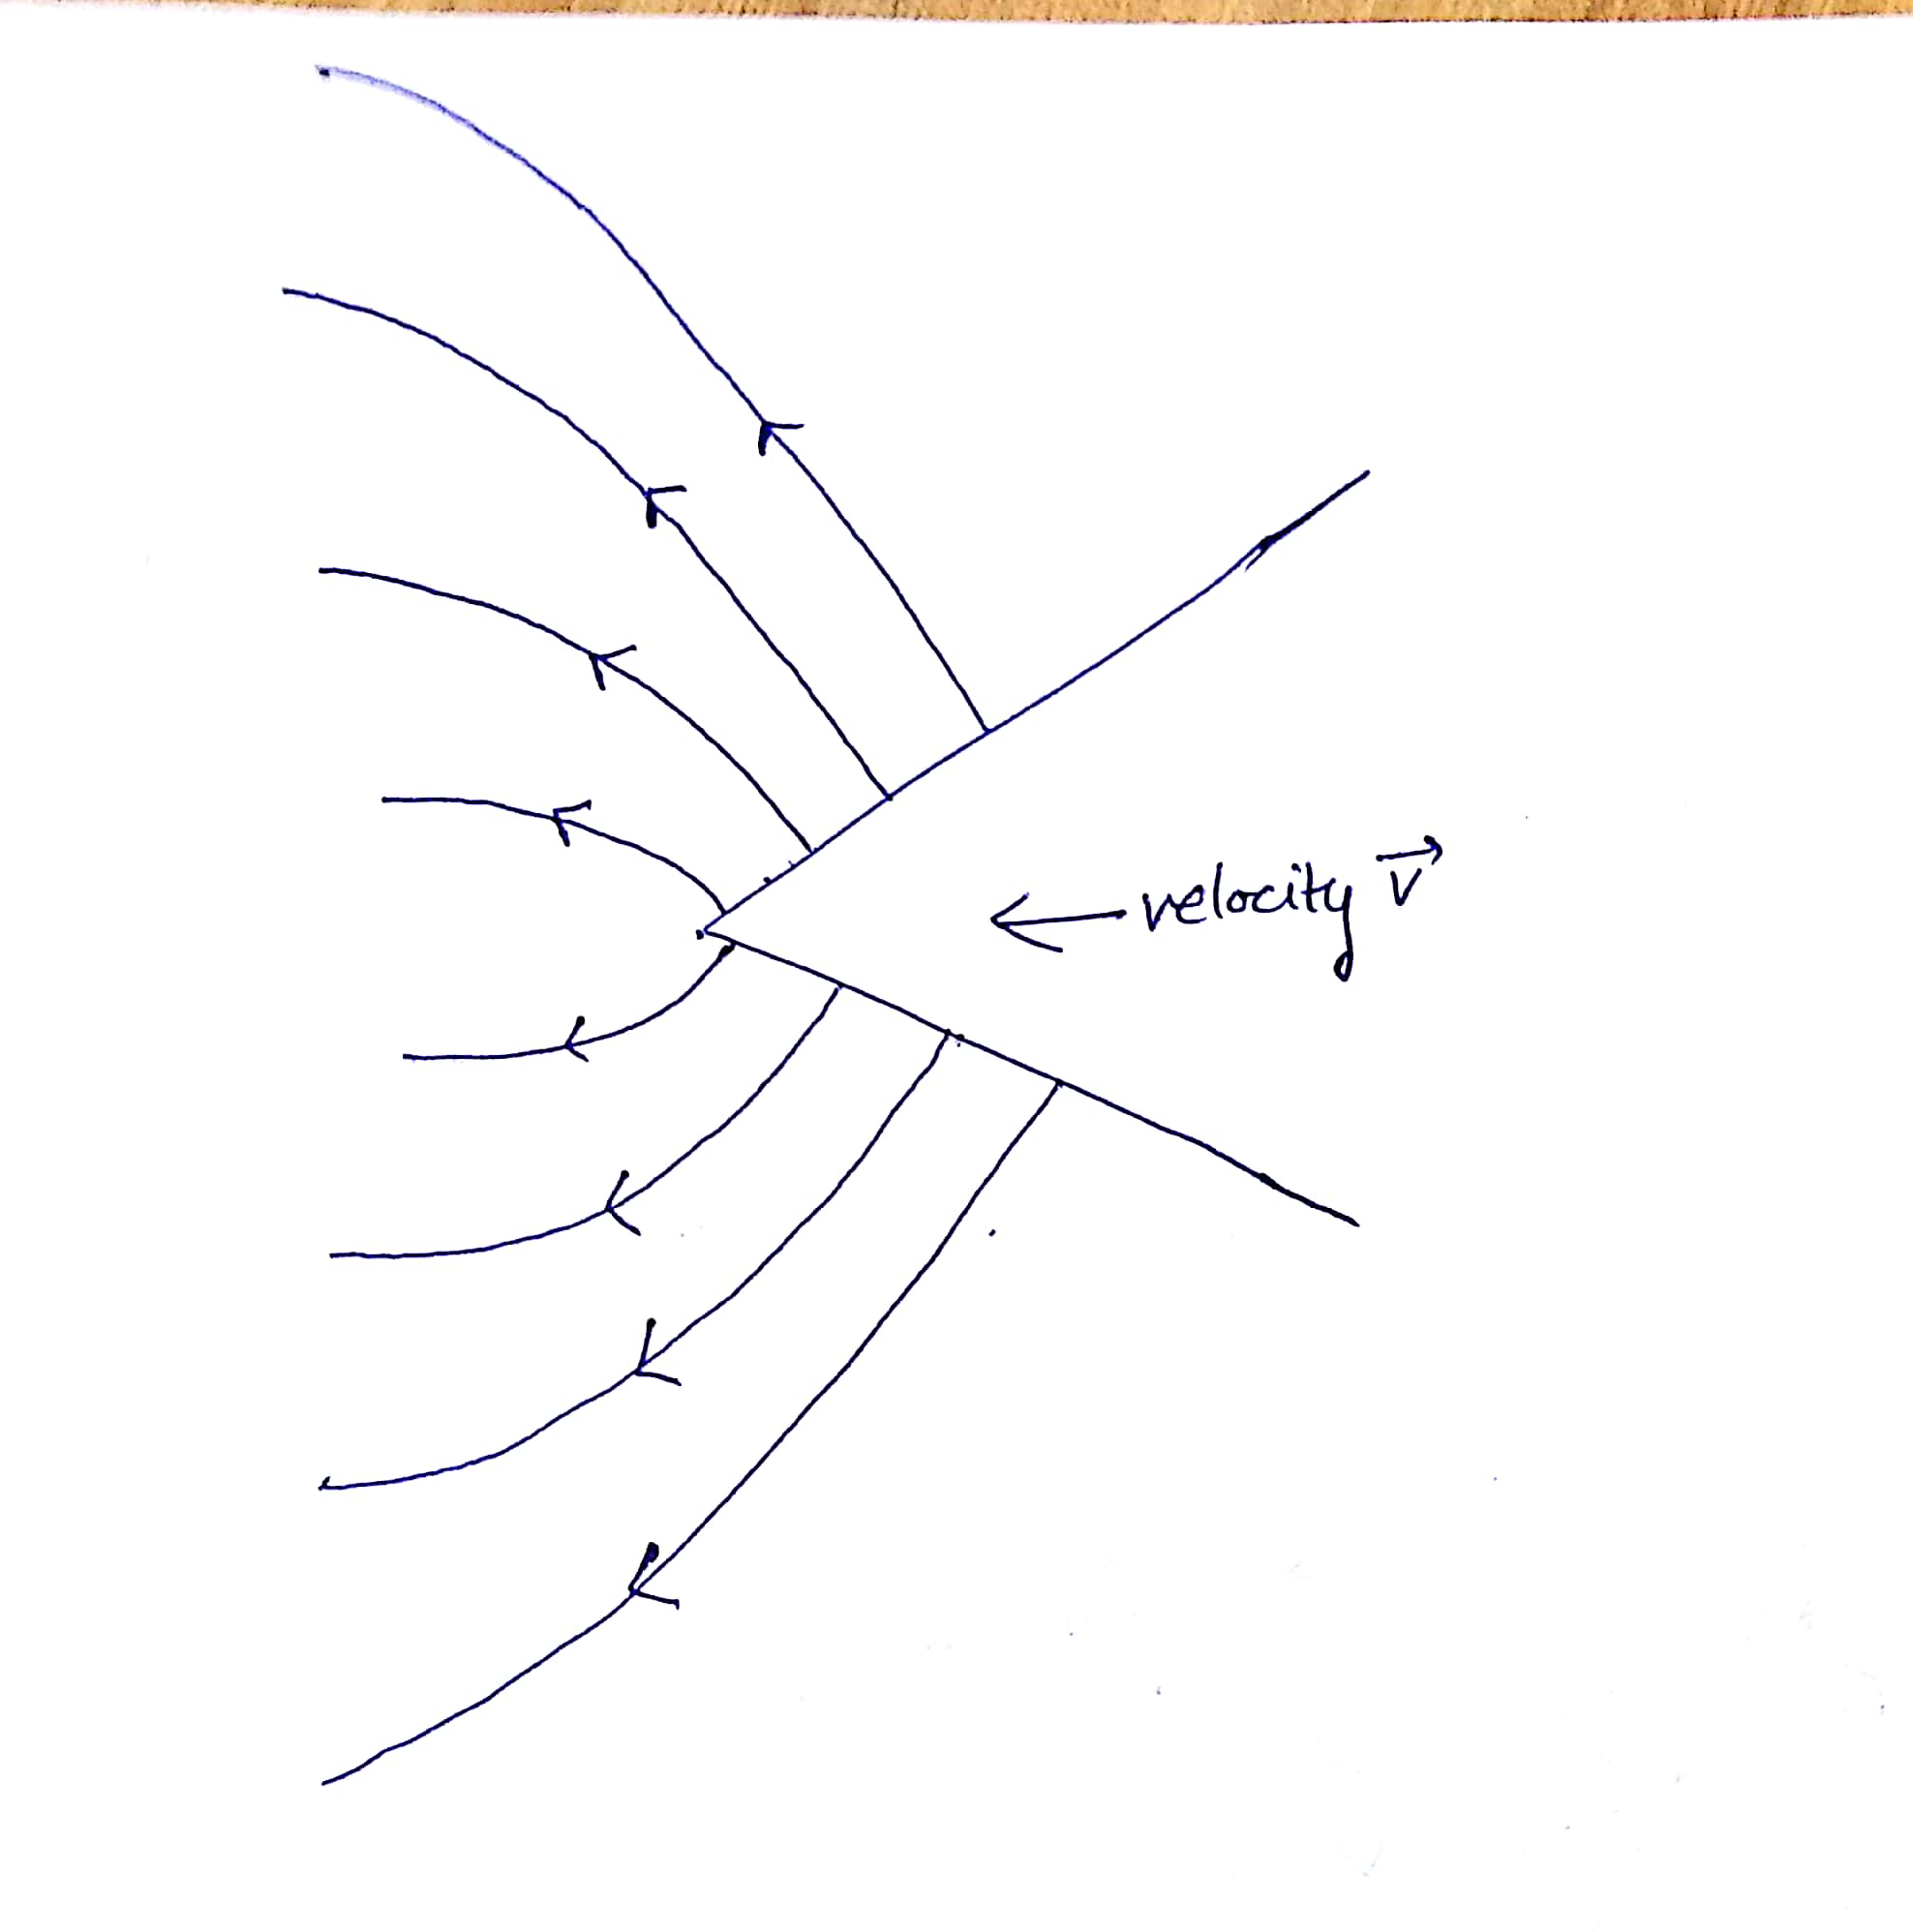 velocity v⃗